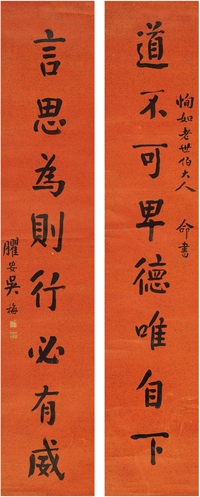 道不可卑德唯自下
恂如老世伯大人 命書
言思為則行必有威
臞安吳梅